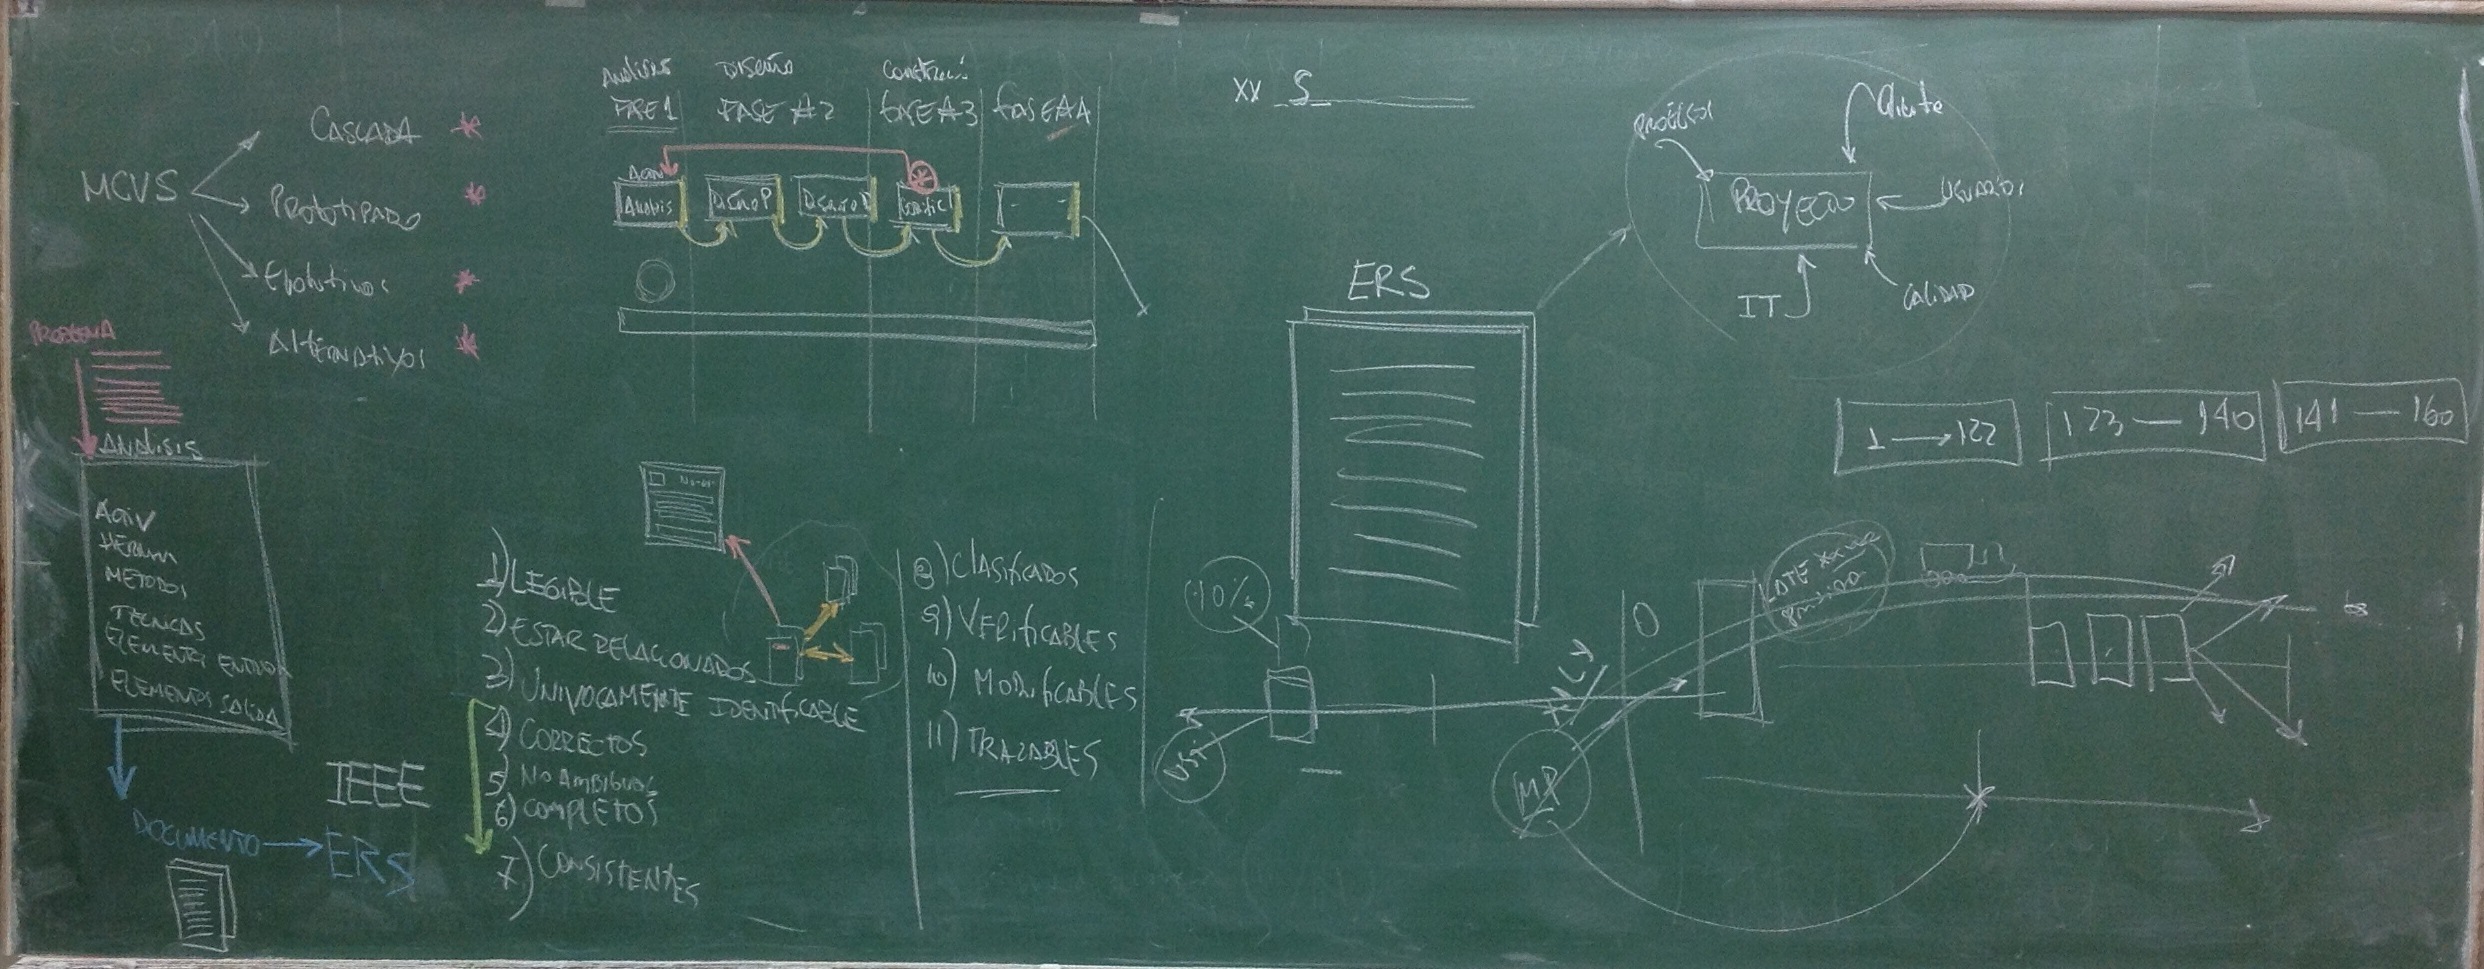 MCVS
CASCADA *
PROTOTIPADO *
Evolutivos *
Alternativos *
PROBLEMA
ANALISIS
ACTIV
HERRAM
METODOS
TECNICAS
ELEMENTOS ENTRADA
ELEMENTOS SALIDA
DOCUMENTO → ERS
IEEE
Análisis
FASE 1
DISEÑO
FASE #2
Construcci
FASE #3
FASE #4
Activ
Análisis
DISEÑO P
DISEÑO D
1) LEGIBLE
2) ESTAR RELACIONADOS
3) UNIVOCAMENTE IDENTIFICABLE
4) CORRECTOS
5) NO AMBIGUOS
6) COMPLETOS
7) CONSISTENTES
8) CLASIFICADOS
9) VERIFICABLES
10) MODIFICABLES
11) TRAZABLES
XX S
ERS
PROCESOS
Cliente
PROYECTO
USUARIOS
CALIDAD
IT
1 → 122
123 — 140
141 — 160
10%
MP